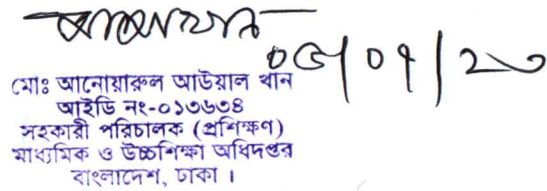 ০৫/০৭/২০
মোঃ আনোয়ারুল আউয়াল খান
আইডি নং-০১৩৬৩৪
সহকারী পরিচালক (প্রশিক্ষণ)
মাধ্যমিক ও উচ্চশিক্ষা অধিদপ্তর
বাংলাদেশ, ঢাকা ।